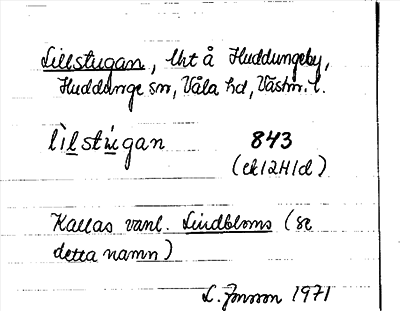 Lillstugan, lht å Huddungeby,
Huddunge sn, Våla hd, Västm. l.
lìlstúgan 843
(ek 12H1d)
Kallas vanl. Lindbloms (se
detta namn)
L. Jonsson 1971